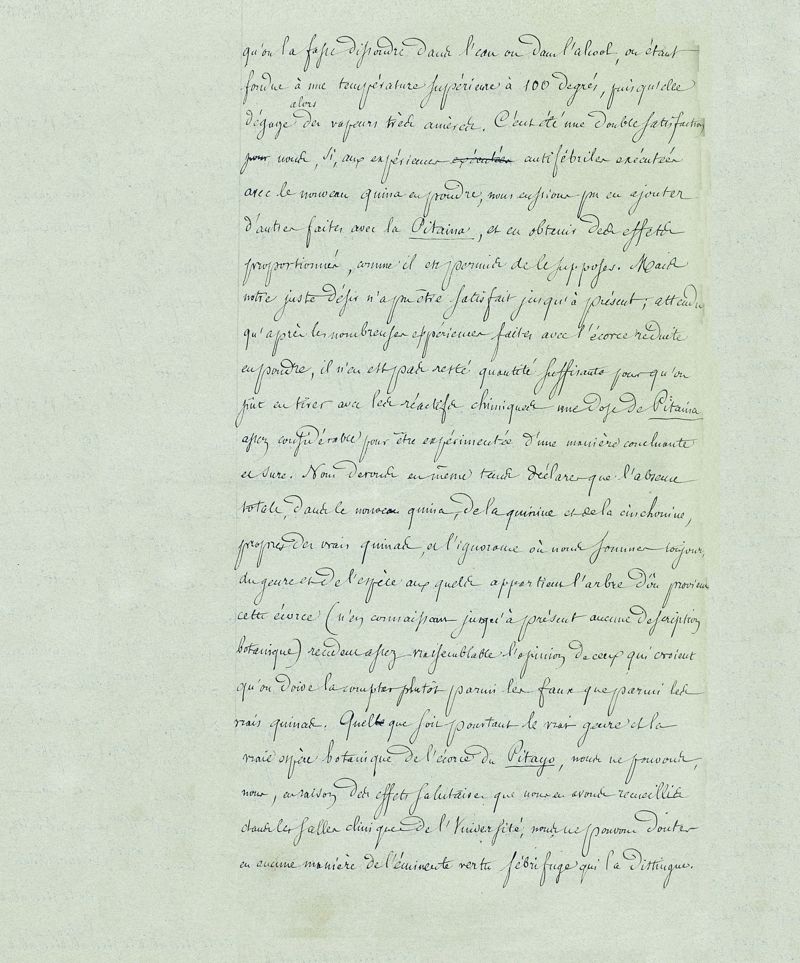 qu'on la fasse dissoudre dans l'eau ou dans l'alcool, ou étant
fondue à une température supérieure à 100 degrés, puisqu'elle
alors
dégage des vapeurs très amères. C'eut été une double satisfaction
pour nous, si, aux expériences exécutées antifébriles exécutées
avec le nouveau quina en poudre, nous eussions pu en ajouter
d'autres faites avec la Pitaina, et en obtenir des effets
proportionnés, comme il est permis de le supposer. Mais
notre juste désir n'a pu être satisfait jusqu'à présent; attendu
qu'après les nombreuses expériences faites avec l'écorce réduite
en poudre, il n'en est pas resté quantité suffisante pour qu'on
pût en tirer avec les réactifs chimiques une dose de Pitaina
assez considérable pour être expérimentée d'une manière concluante
et sure. Nous devons en même tems déclarer que l'absence
totale, dans le nouveau quina, de la quinine et de la cinchonine,
propres des vrais quinas, et l'ignorance où nous sommes toujours,
du genre et de l'espèce aux quels appartient l'arbre d'où provient
cette écorce (n'en connaissant jusqu'à présent aucune description
botanique) rendent assez vraisemblable l'opinion de ceux qui croient
qu'on doive la compter plutôt parmi les faux que parmi les
vrais quinas. Quel que soit pourtant le vrai genre et la
vraie espèce botanique de l'écorce du Pitayo, nous ne pouvons,
nous, en raison des effets salutaires que nous en avons recueillis
dans les salles cliniques de l'Université, nous ne pouvons douter
en aucune manière de l'éminente vertu fébrifuge qui la distingue.